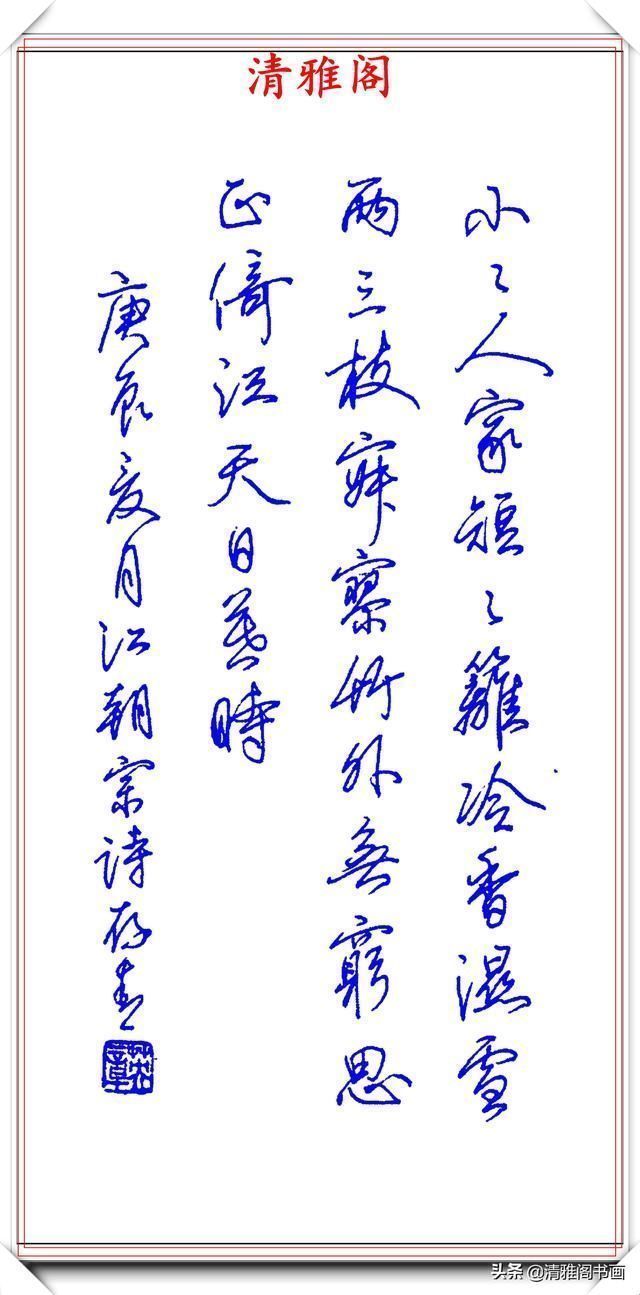 清雅阁
小々人家短々籬冷香濕雪
兩三枝寂寥竹外無窮思
正倚江天日暮時
庚辰夏月江朝宗詩存青
头条@清雅阁书画